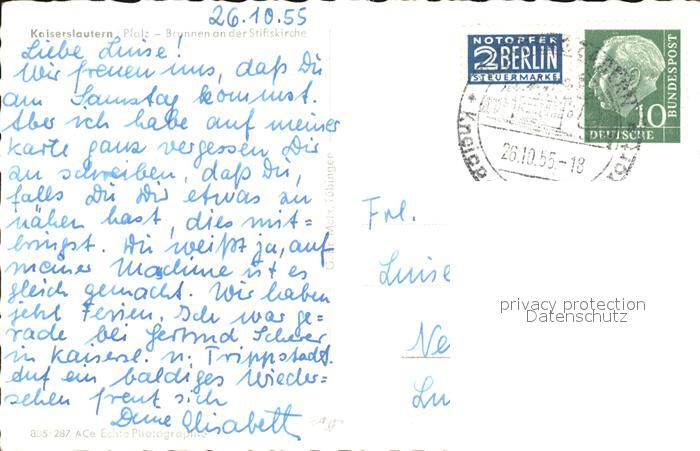 26.10.55
Kaiserslautern, Pfalz – Brunnen an der Stiftskirche
Liebe Luise!
Wir freuen uns, daß Du
am Samstag kommst.
Aber ich habe auf meiner
Karte ganz vergessen Dir
zu schreiben, daß Du,
falls Du Dir etwas zu
nähen hast, dies mit=
bringst. Du weißt ja, auf
meiner Maschine ist es
gleich gemacht. Wir haben
jetzt Ferien. Ich war ge=
rade bei Gertrud Scherer
in Kaisersl. u. Trippstadt.
Auf ein baldiges Wieder=
sehen freut sich
Deine Elisabeth
805/287 ACo Echte Photographie
Metz, Tübingen
NOTOPFER
2 BERLIN
STEUERMARKE
10
DEUTSCHE
BUNDESPOST
26.10.55.-18
Frl.
Luise
Ne
Lu
privacy protection
Datenschutz